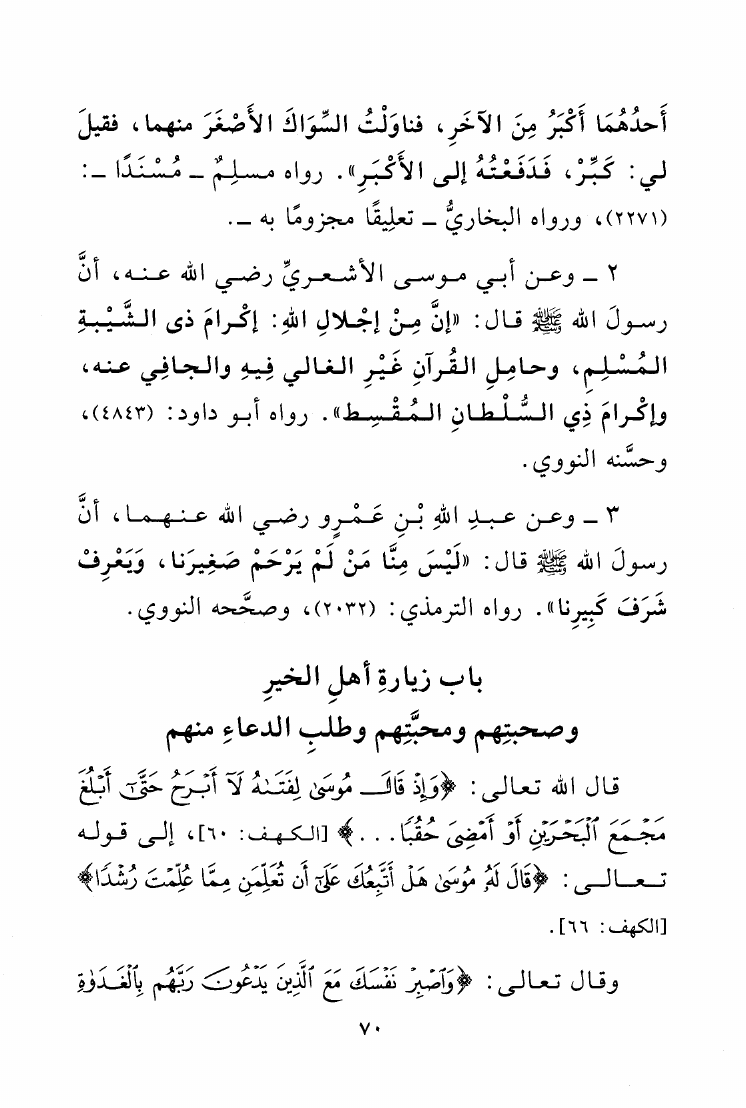 أَحدُهُمَا أَكْبَرُ مِنَ الآخَرِ، فناوَلْتُ السِّوَاكَ الأَصْغَرَ منهما، فقيلَ
لي: كَبِّرْ، فَدَفَعْتُهُ إلى الأَكْبَرِ». رواه مسلِمٌ ـ مُسْنَدًا ـ:
(٢٢٧١)، ورواه البخاريُّ ـ تعلِيقًا مجزومًا به ـ.
٢ ـ وعن أبي موسى الأشعريِّ رضي الله عنه، أنَّ
رسولَ الله ﷺ قال: «إنَّ مِنْ إجْلالِ اللهِ: إكْرامَ ذى الشَّيْبةِ
المُسْلِمِ، وحامِلِ القُرآنِ غَيْرِ الغالي فِيهِ والجافِي عنه،
وإكْرامَ ذِي السُّلْطانِ المُقْسِط». رواه أبو داود: (٤٨٤٣)،
وحسَّنه النووي.
٣ ـ وعن عبدِ اللهِ بْنِ عَمْرٍو رضي الله عنهما، أنَّ
رسولَ الله ﷺ قال: «لَيْسَ مِنَّا مَنْ لَمْ يَرْحَمْ صَغِيرَنا، وَيَعْرِفْ
شَرَفَ كَبِيرِنا». رواه الترمذي: (٢٠٣٢)، وصحَّحه النووي.
باب زيارةِ أهلِ الخيرِ
وصحبتِهم ومحبَّتِهم وطلبِ الدعاءِ منهم
قال الله تعالى: ﴿وَإِذْ قَالَ مُوسَىٰ لِفَتَىٰهُ لَآ أَبْرَحُ حَتَّىٰٓ أَبْلُغَ
مَجْمَعَ ٱلْبَحْرَيْنِ أَوْ أَمْضِىَ حُقُبًا...﴾ [الكهف: ٦٠]، إلى قوله
تعالى: ﴿قَالَ لَهُۥ مُوسَىٰ هَلْ أَتَّبِعُكَ عَلَىٰٓ أَن تُعَلِّمَنِ مِمَّا عُلِّمْتَ رُشْدًا﴾
[الكهف: ٦٦].
وقال تعالى: ﴿وَٱصْبِرْ نَفْسَكَ مَعَ ٱلَّذِينَ يَدْعُونَ رَبَّهُم بِٱلْغَدَوٰةِ
٧٠